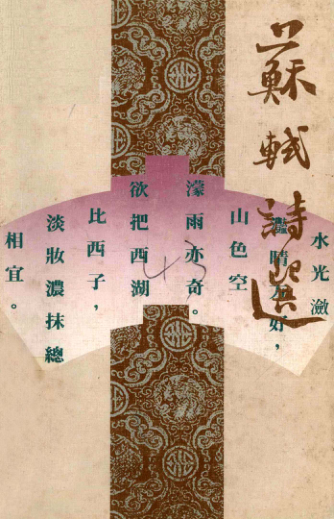 蘇軾詩選
水光瀲
灩晴方好,
山色空
濛雨亦奇。
欲把西湖
比西子,
淡妝濃抹總
相宜。
43